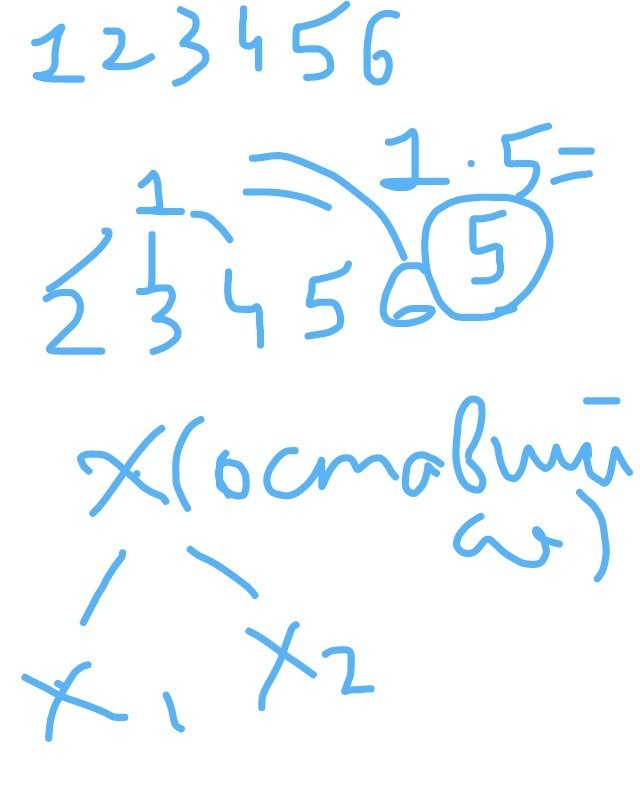 1 2 3 4 5 6
1 · 5 =
1
5
2 3 4 5 6
x(оставший
ся)
x1
x2